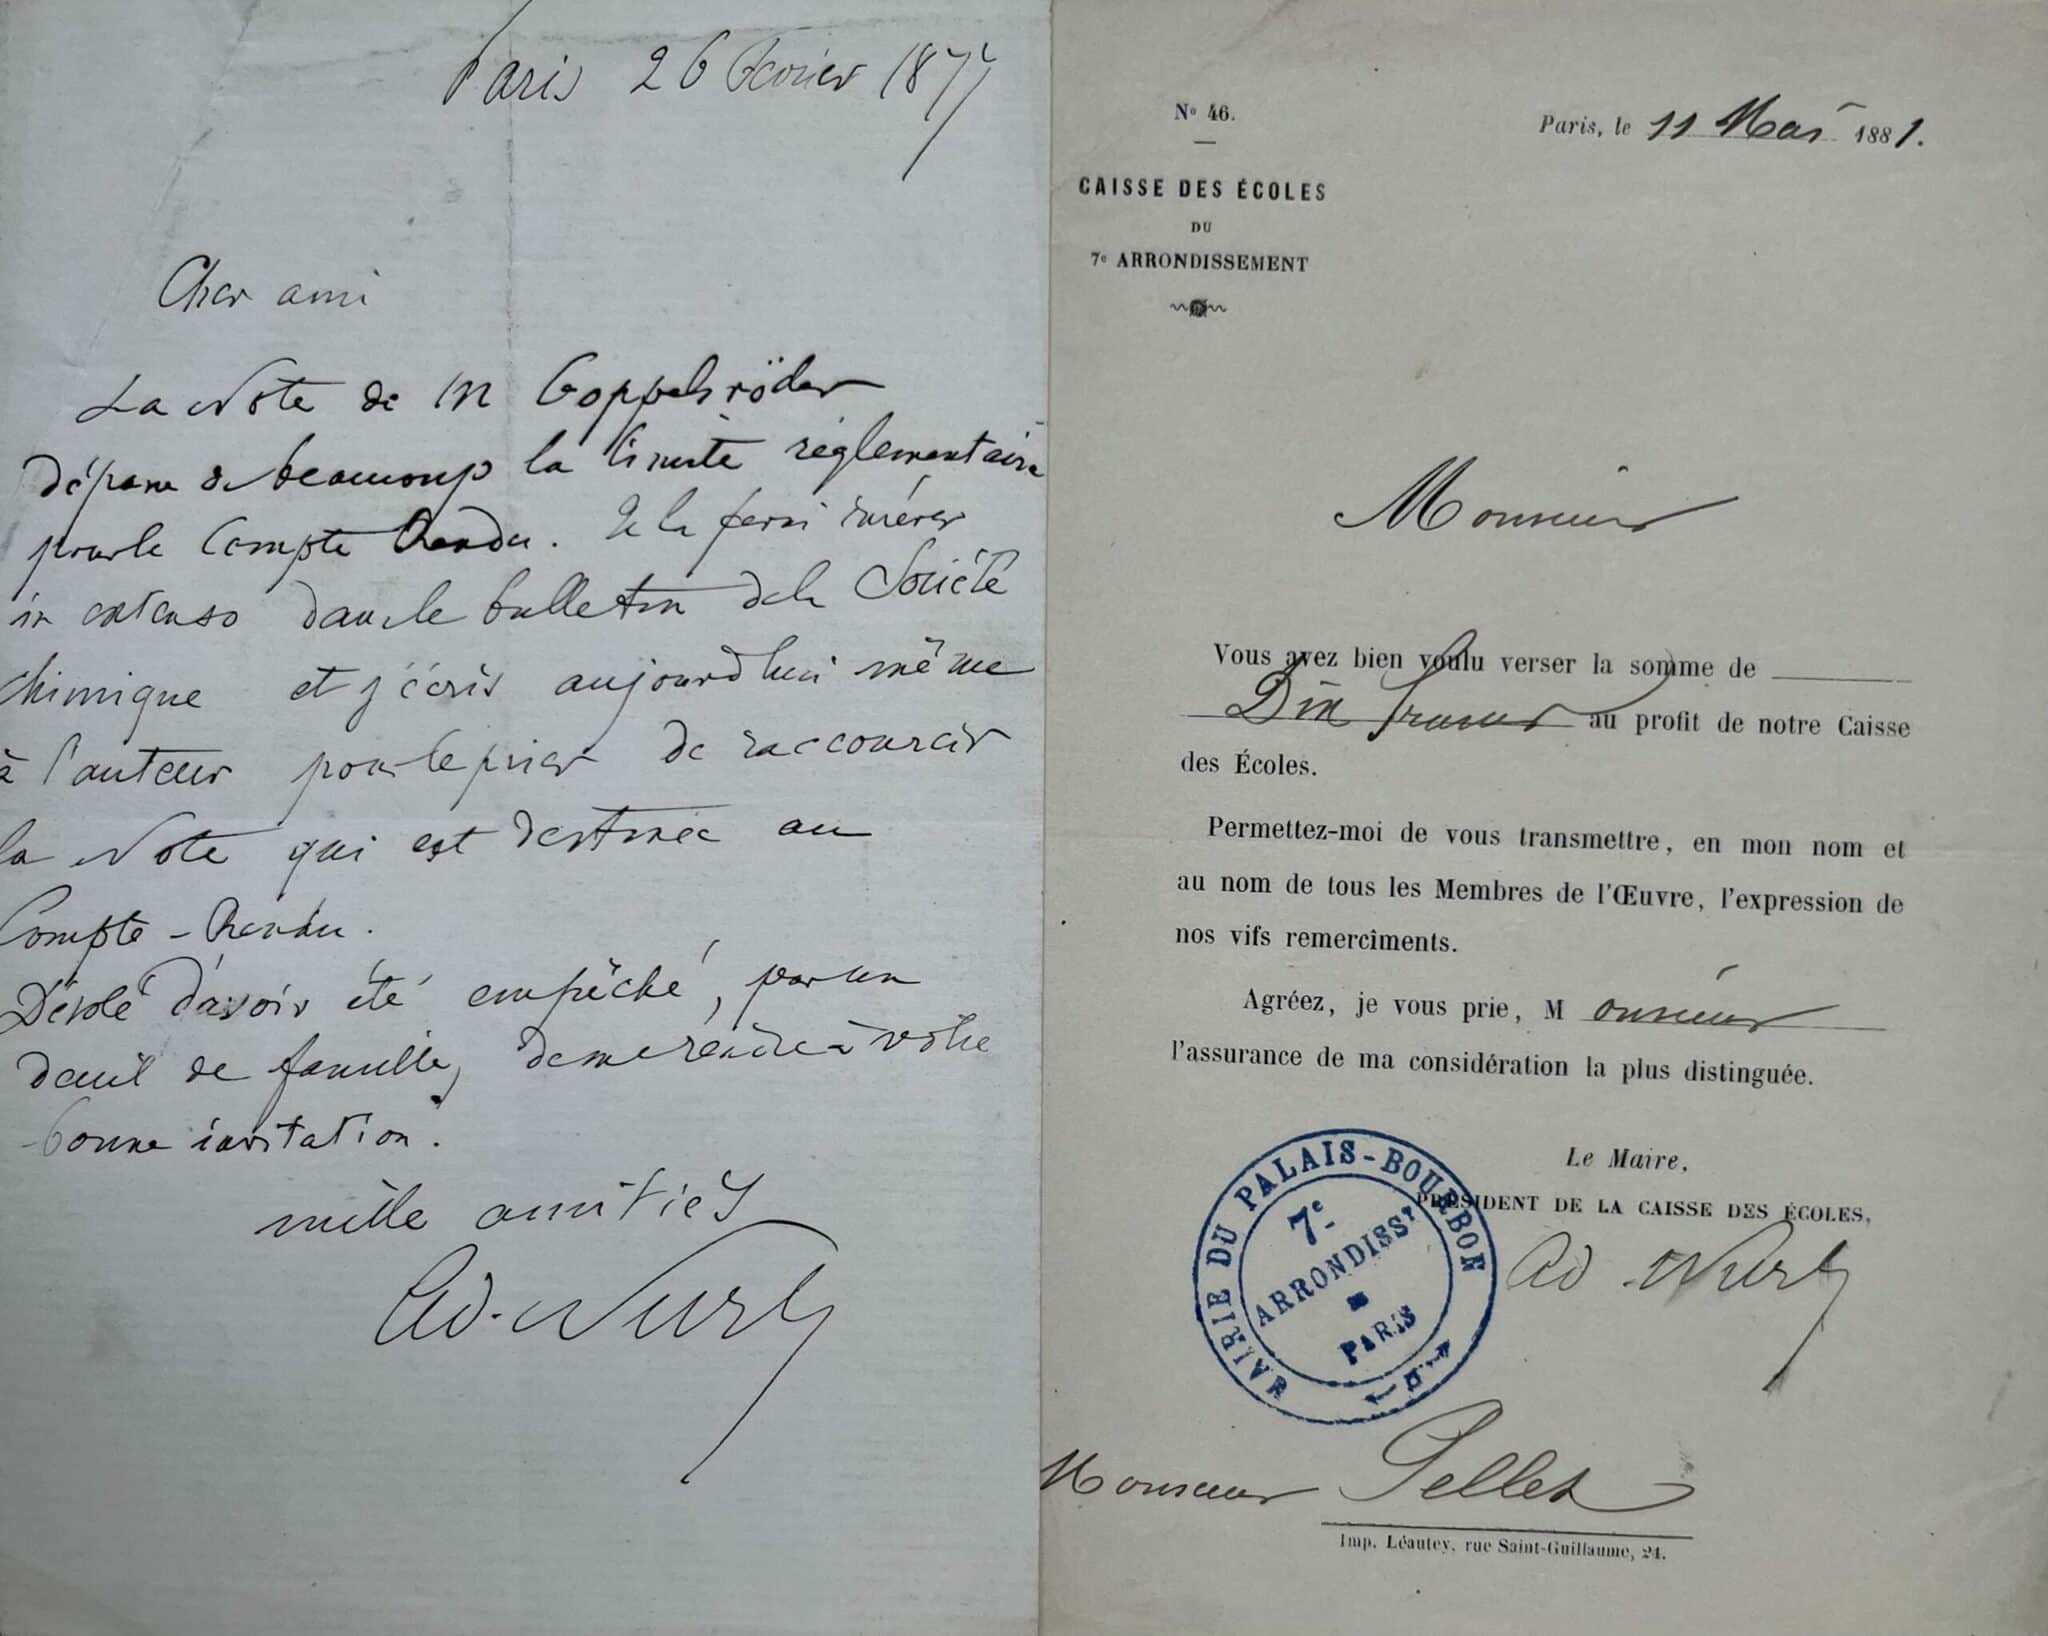 Paris 26 Février 1877
Cher ami
La Note de M Goppelsröder
dépasse de beaucoup la limite réglementaire
pour le Compte Rendu. Je la ferai insérer
in extenso dans le bulletin de la Société
chimique et j'écris aujourd'hui même
à l'auteur pour le prier de raccourcir
la Note qui est destinée au
Compte-Rendu.
Désolé d'avoir été empêché, par un
deuil de famille, de me rendre à votre
bonne invitation.
mille amitiés
Ad. Wurtz
No 46.
CAISSE DES ÉCOLES
DU
7e ARRONDISSEMENT
Paris, le 11 Mai 1881.
Monsieur
Vous avez bien voulu verser la somme de
Dix francs au profit de notre Caisse
des Écoles.
Permettez-moi de vous transmettre, en mon nom et
au nom de tous les Membres de l'Œuvre, l'expression de
nos vifs remercîments.
Agréez, je vous prie, Monsieur
l'assurance de ma considération la plus distinguée.
Le Maire,
PRÉSIDENT DE LA CAISSE DES ÉCOLES,
Ad Wurtz
MAIRIE DU PALAIS-BOURBON
7e
ARRONDISST
PARIS
Monsieur Pellet
Imp. Léautey, rue Saint-Guillaume, 24.